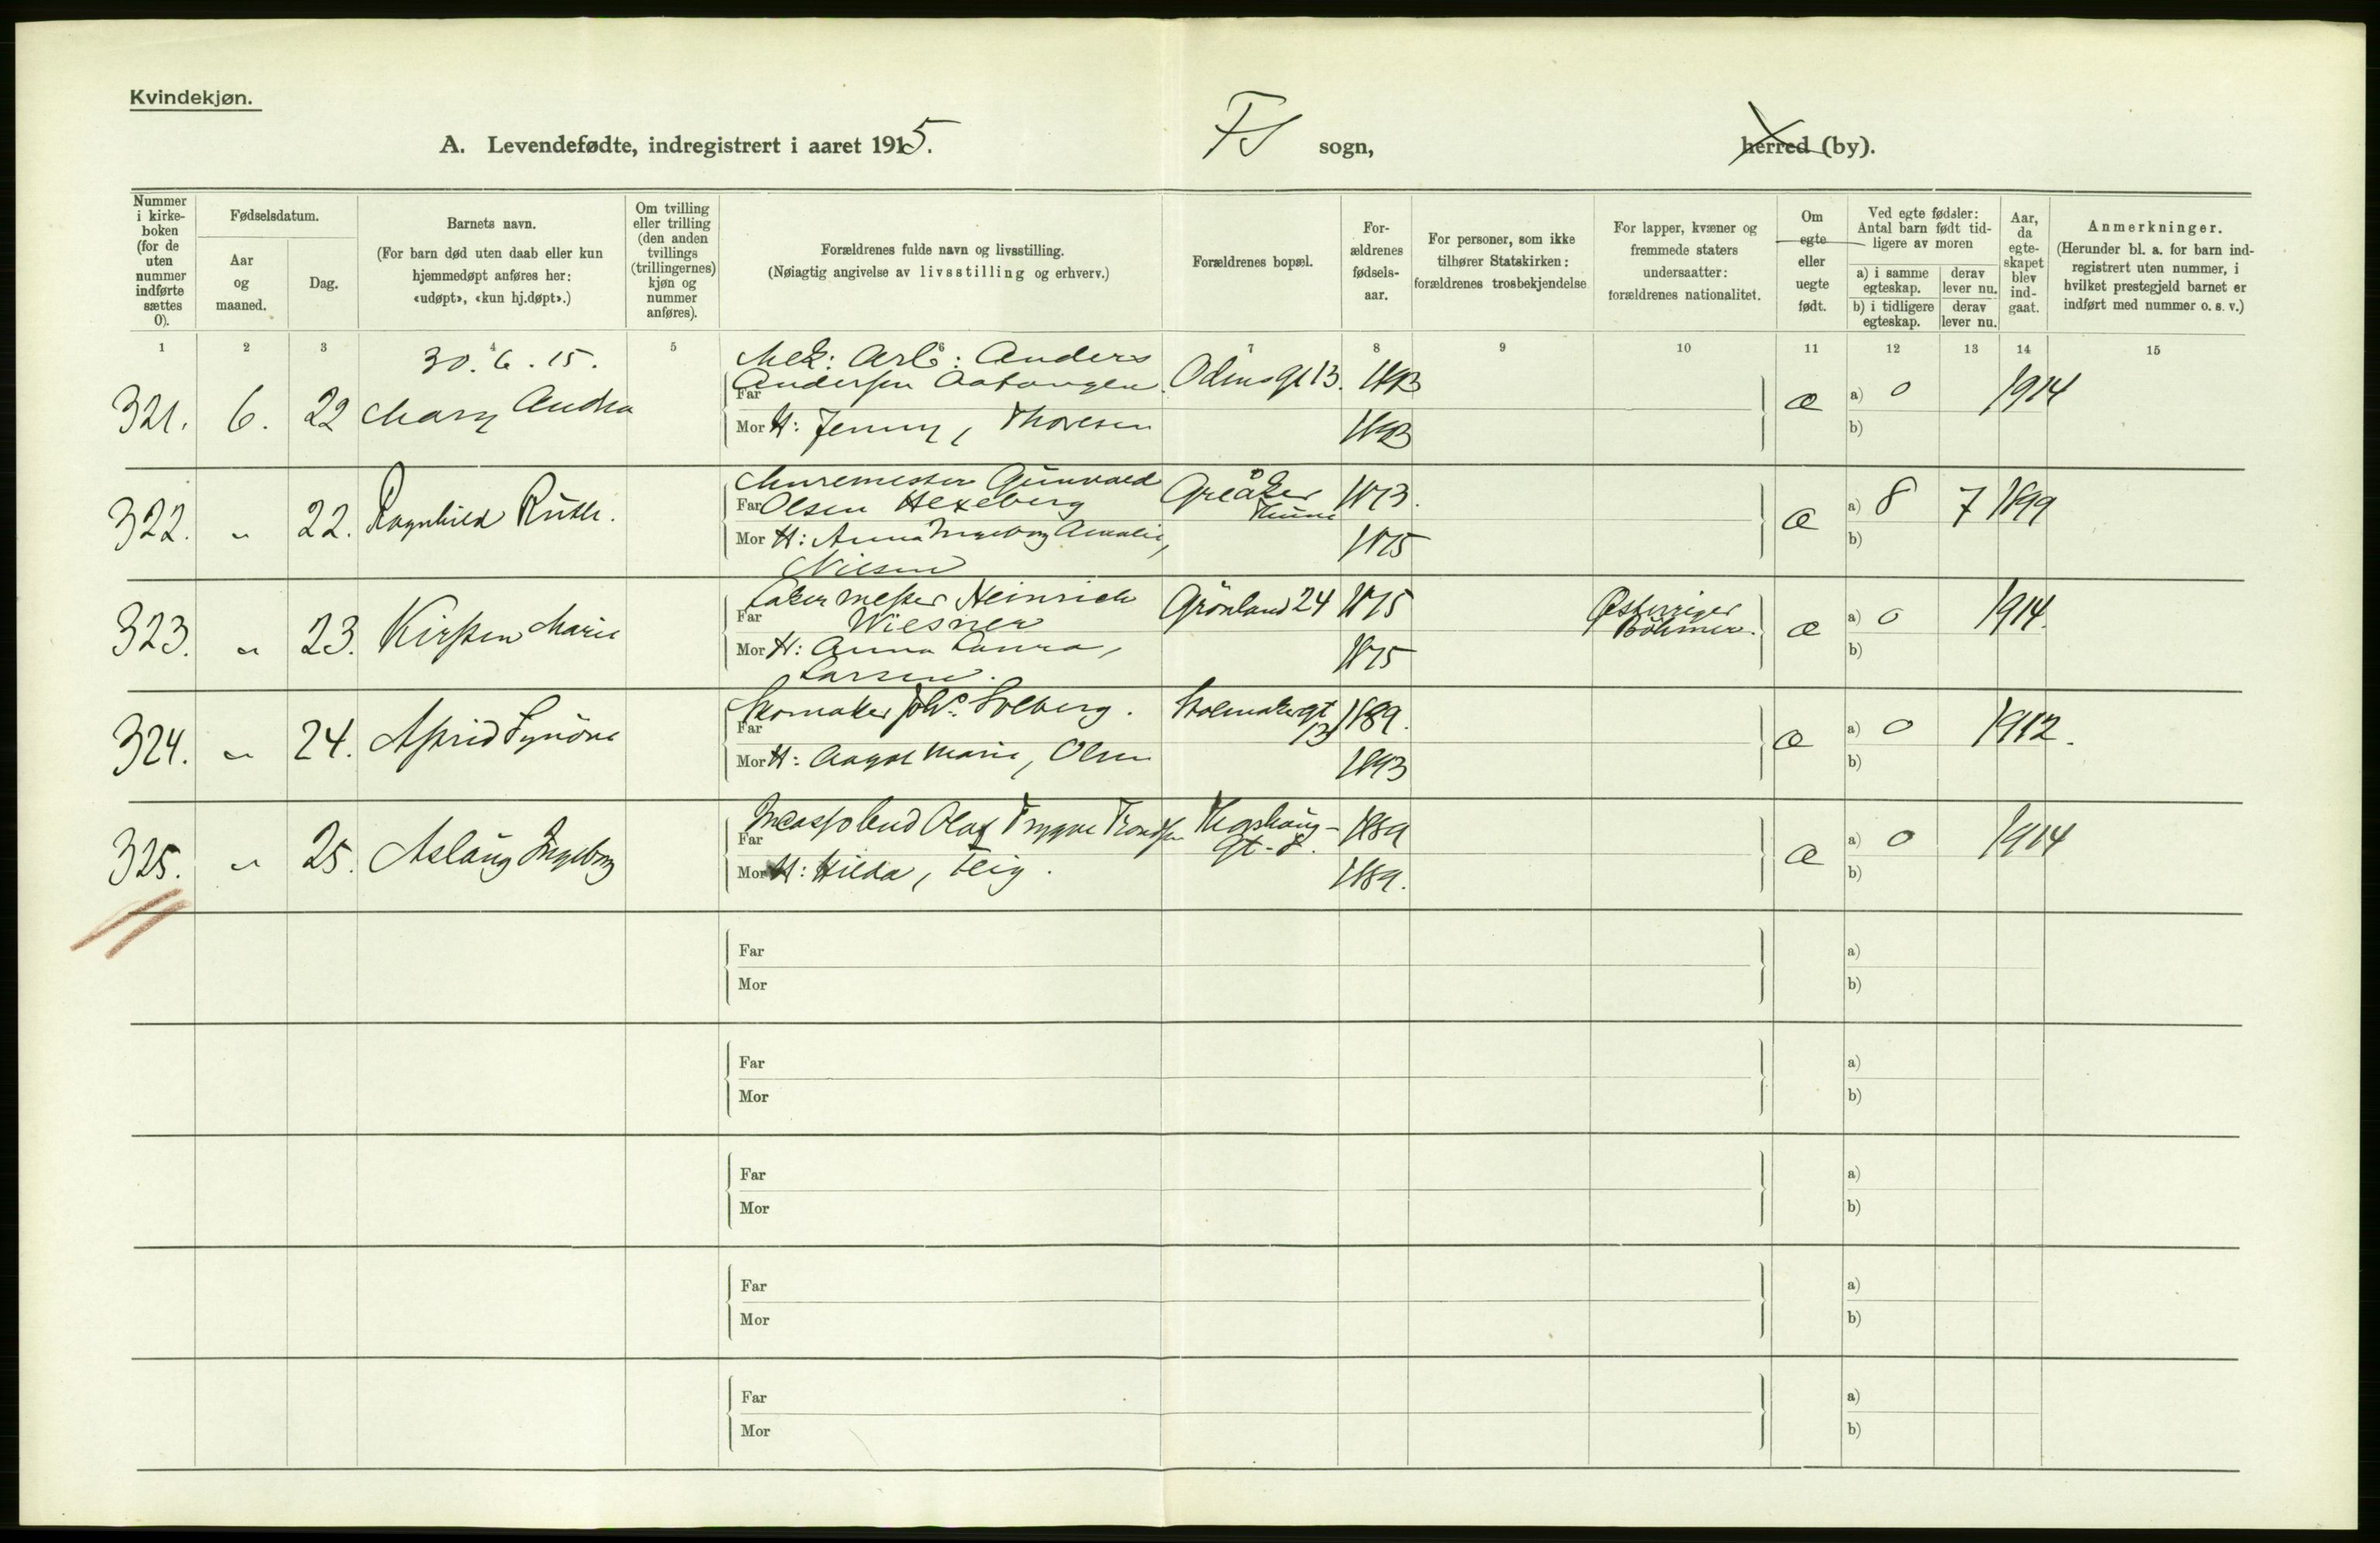 Kvindekjøn.
A. Levendefødte, indregistrert i aaret 1915.
FS sogn,
herred (by).
Nummer i kirke-boken (for de uten nummer indførte sættes 0).
Fødselsdatum.
Aar og maaned.
Dag.
Barnets navn.
(For barn død uten daab eller kun hjemmedøpt anføres her: «udøpt», «kun hj.døpt».)
Om tvilling eller trilling (den anden tvillings (trillingernes) kjøn og nummer anføres).
Forældrenes fulde navn og livsstilling.
(Nøiagtig angivelse av livsstilling og erhverv.)
Forældrenes bopæl.
For-ældrenes fødsels-aar.
For personer, som ikke tilhører Statskirken: forældrenes trosbekjendelse
For lapper, kvæner og fremmede staters undersaatter: forældrenes nationalitet.
Om egte eller uegte født.
Ved egte fødsler: Antal barn født tid-ligere av moren
a) i samme egteskap.
derav lever nu.
b) i tidligere egteskap.
derav lever nu.
Aar, da egte-skapet blev ind-gaat.
Anmerkninger.
(Herunder bl. a. for barn ind-registrert uten nummer, i hvilket prestegjeld barnet er indført med nummer o. s. v.)
1 2 3 4 5 6 7 8 9 10 11 12 13 14 15
30. 6. 15.
Mek: Arb: Anders
321. 6. 22 Mary Andrea Far Andersen Odinsgt 13. 1893 æ a) 0 1914
Mor H: Jenny, Thoresen 1893 b)
Muremester Gunvald
322. " 22. Ragnhild Ruth. Far Olsen Hexeberg Greåker Thune 1873. æ a) 8 7 1899
Mor H: Anna Ingeborg Amalie, 1875 b)
Nilsen
Lakermester Heinrich
323. " 23. Kirsten Marie Far Wiesner Grönland 24 1875 Østerriger Böhmer. æ a) 0 1914.
Mor H: Anna Laura, 1875 b)
Larsen.
324. " 24. Astrid Synöve Far Skomaker Johs. Solberg. 13 1889. æ a) 0 1912.
Mor H: Aagot Marie, Olsen 1893 b)
325. " 25. Aslaug Ingeborg Far Olaf Trygve Trondsen Heghaug-gt. 1889 æ a) 0 1914
Mor H: Hilda, Teig. 1889. b)
Far a)
Mor b)
Far a)
Mor b)
Far a)
Mor b)
Far a)
Mor b)
Far a)
Mor b)